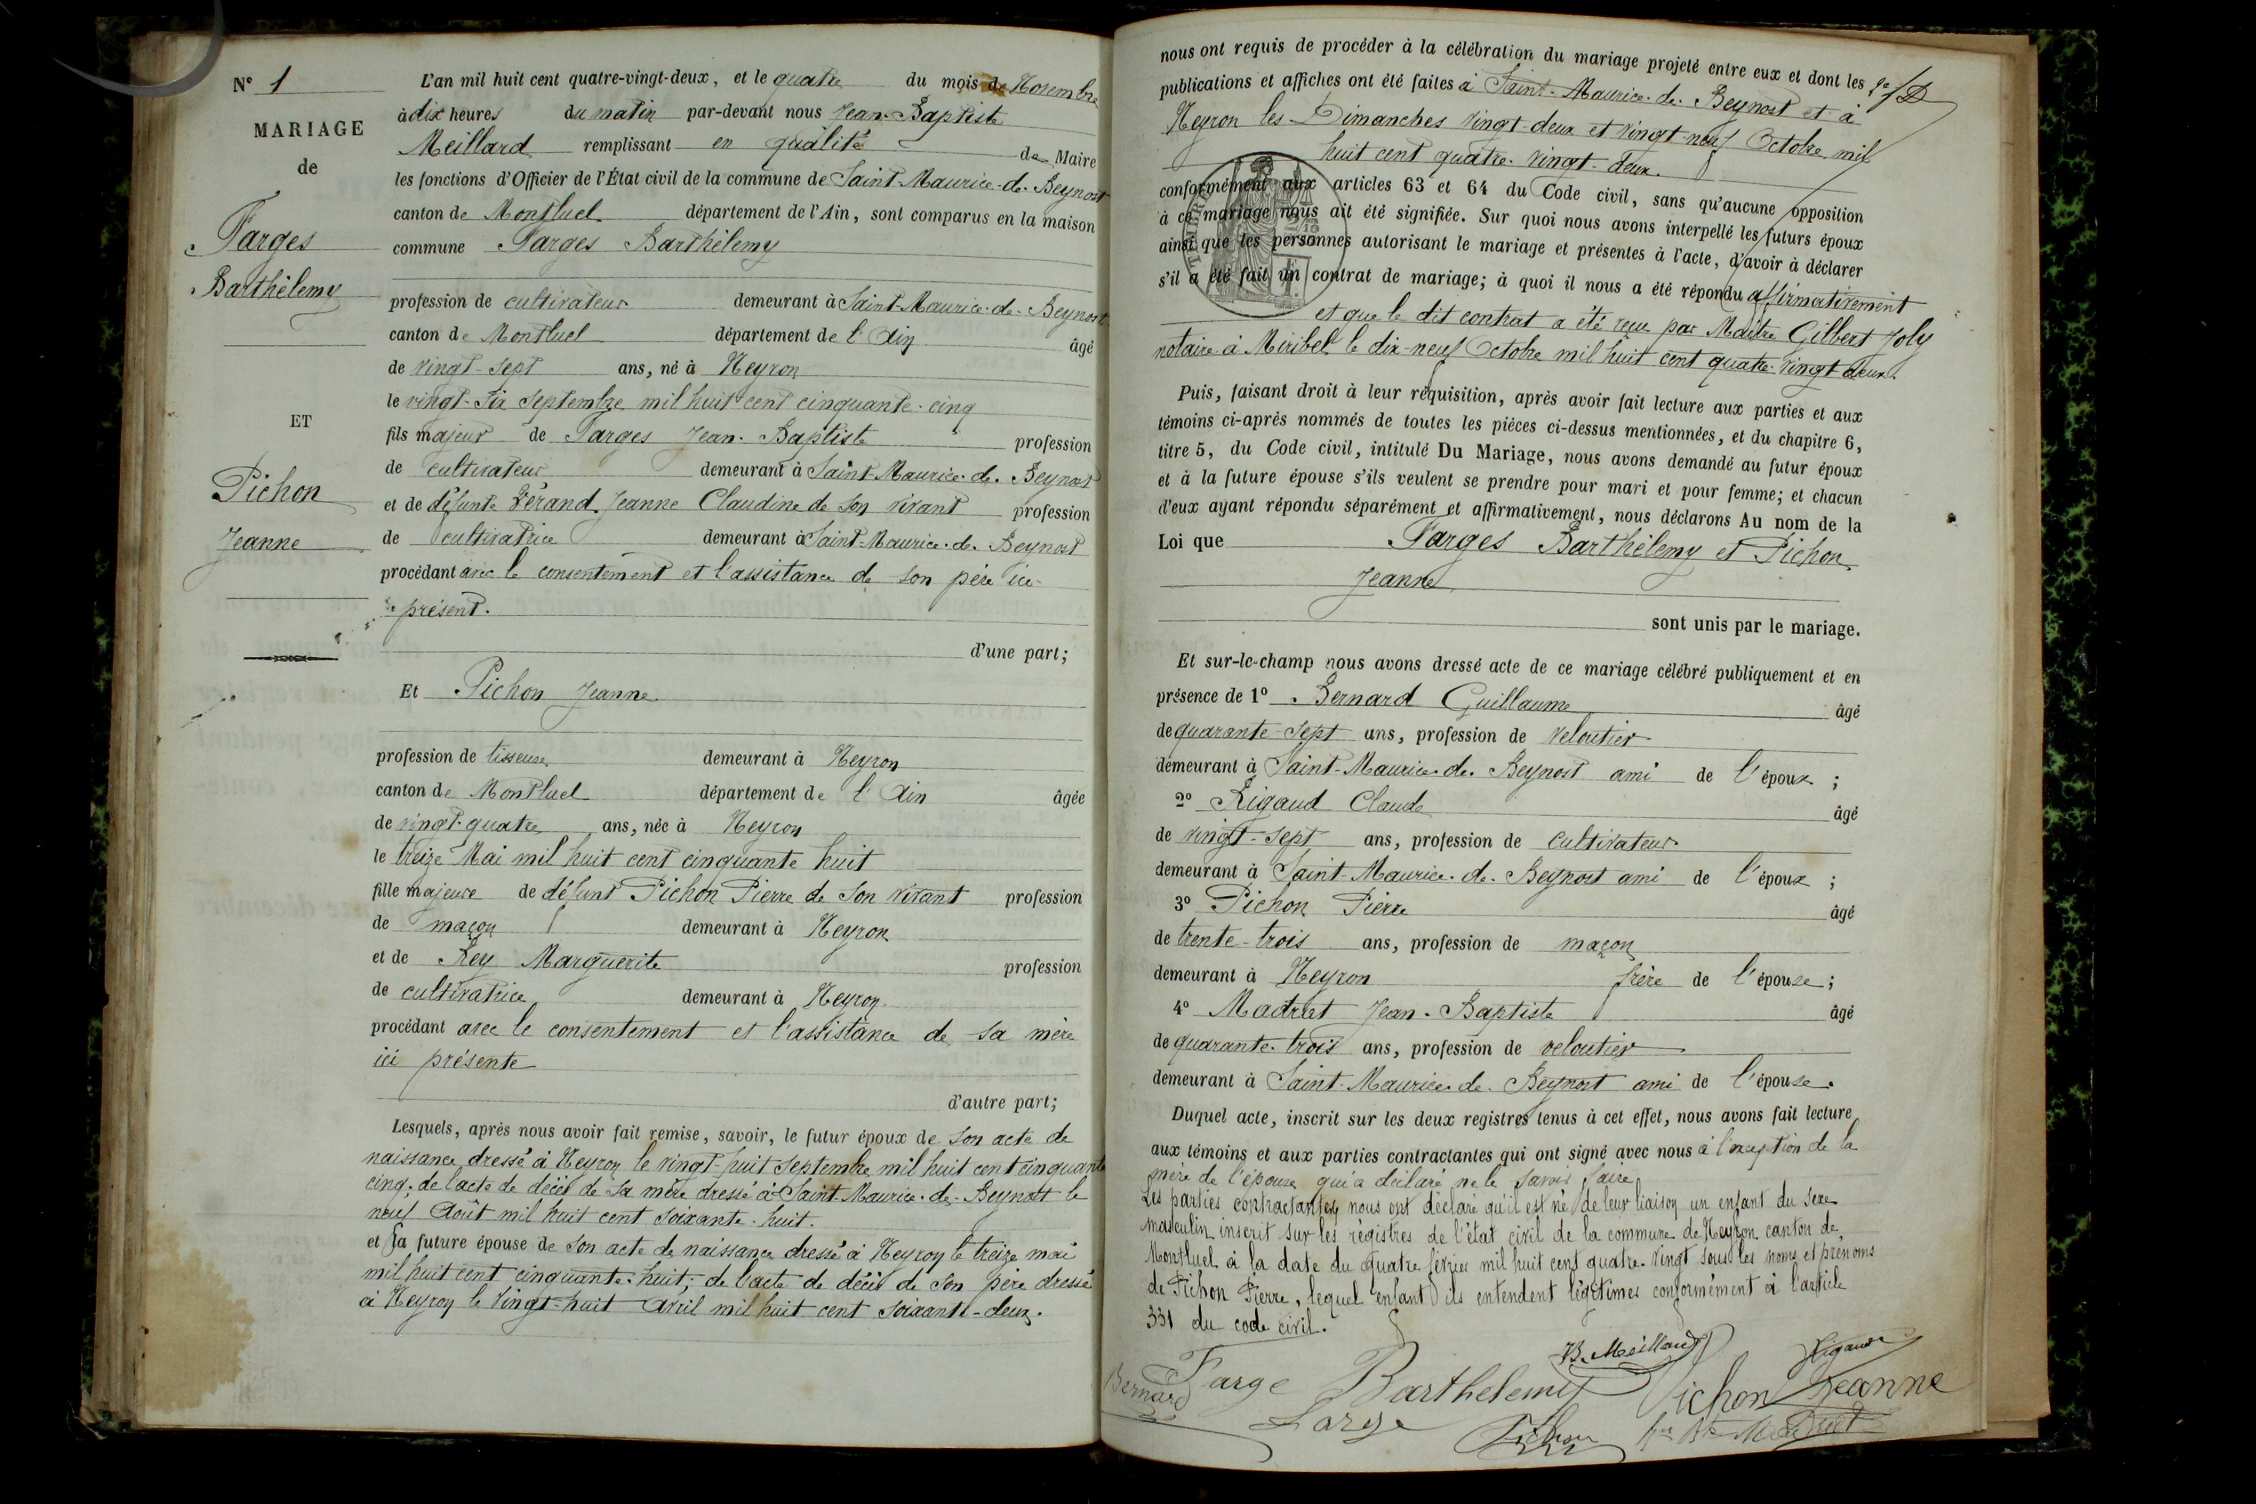 N° 1
MARIAGE
de
Farges
Barthélemy
ET
Pichon
Jeanne
L'an mil huit cent quatre-vingt-deux, et le quatre du mois de Novembre
à dix heures du matin par-devant nous Jean-Baptiste
Meillard remplissant en qualité de Maire
les fonctions d'Officier de l'État civil de la commune de Saint-Maurice-de-Beynost
canton de Montluel département de l'Ain, sont comparus en la maison
commune Farges Barthélemy
profession de cultivateur demeurant à Saint-Maurice-de-Beynost
canton de Montluel département de l'Ain âgé
de vingt-sept ans, né à Neyron
le vingt-six Septembre mil huit cent cinquante-cinq
fils majeur de Farges Jean-Baptiste profession
de cultivateur demeurant à Saint-Maurice-de-Beynost
et de défunte Vérand Jeanne Claudine de son vivant profession
de cultivatrice demeurant à Saint-Maurice-de-Beynost
procédant avec le consentement et l'assistance de son père ici
présent.
d'une part;
Et Pichon Jeanne
profession de tisseuse demeurant à Neyron
canton de Montluel département de l'Ain âgée
de vingt-quatre ans, née à Neyron
le treize Mai mil huit cent cinquante huit
fille majeure de défunt Pichon Pierre de son vivant profession
de maçon demeurant à Neyron
et de Rey Marguerite profession
de cultivatrice demeurant à Neyron
procédant avec le consentement et l'assistance de sa mère
ici présente
d'autre part;
Lesquels, après nous avoir fait remise, savoir, le futur époux de son acte de
naissance dressé à Neyron le vingt-huit Septembre mil huit cent cinquante
cinq; de l'acte de décès de sa mère dressé à Saint-Maurice-de-Beynost le
neuf Août mil huit cent soixante-huit.
et la future épouse de son acte de naissance dressé à Neyron le treize mai
mil huit cent cinquante-huit; de l'acte de décès de son père dressé
à Neyron le vingt-huit Avril mil huit cent soixante-deux.
nous ont requis de procéder à la célébration du mariage projeté entre eux et dont les
publications et affiches ont été faites à Saint-Maurice-de-Beynost et à
Neyron les Dimanches vingt-deux et vingt-neuf Octobre mil
huit cent quatre-vingt-deux.
conformément aux articles 63 et 64 du Code civil, sans qu'aucune opposition
à ce mariage nous ait été signifiée. Sur quoi nous avons interpellé les futurs époux
ainsi que les personnes autorisant le mariage et présentes à l'acte, d'avoir à déclarer
s'il a été fait un contrat de mariage; à quoi il nous a été répondu affirmativement
et que le dit contrat a été reçu par Maître Gilbert Joly
notaire à Miribel le dix-neuf Octobre mil huit cent quatre-vingt-deux.
Puis, faisant droit à leur réquisition, après avoir fait lecture aux parties et aux
témoins ci-après nommés de toutes les pièces ci-dessus mentionnées, et du chapitre 6,
titre 5, du Code civil, intitulé Du Mariage, nous avons demandé au futur époux
et à la future épouse s'ils veulent se prendre pour mari et pour femme; et chacun
d'eux ayant répondu séparément et affirmativement, nous déclarons Au nom de la
Loi que Farges Barthélemy et Pichon
Jeanne
sont unis par le mariage.
Et sur-le-champ nous avons dressé acte de ce mariage célébré publiquement et en
présence de 1° Bernard Guillaume âgé
de quarante-sept ans, profession de veloutier
demeurant à Saint-Maurice-de-Beynost ami de l'époux;
2° Rigaud Claude âgé
de vingt-sept ans, profession de cultivateur
demeurant à Saint-Maurice-de-Beynost ami de l'époux;
3° Pichon Pierre âgé
de trente-trois ans, profession de maçon
demeurant à Neyron frère de l'épouse;
4° Madret Jean-Baptiste âgé
de quarante-trois ans, profession de veloutier
demeurant à Saint-Maurice-de-Beynost ami de l'épouse.
Duquel acte, inscrit sur les deux registres tenus à cet effet, nous avons fait lecture
aux témoins et aux parties contractantes qui ont signé avec nous à l'exception de la
mère de l'épouse qui a déclaré ne le savoir faire
Les parties contractantes nous ont déclaré qu'il est né de leur liaison un enfant du sexe
masculin inscrit sur les régistres de l'état civil de la commune de Neyron canton de
Montluel à la date du quatre février mil huit cent quatre-vingt sous les noms et prénoms
de Pichon Pierre, lequel enfant ils entendent légitimer conformément à l'article
331 du code civil.
B. Meillard Rigaud
Bernard Farge Barthelemy Pichon Jeanne
Farge Pichon Madret